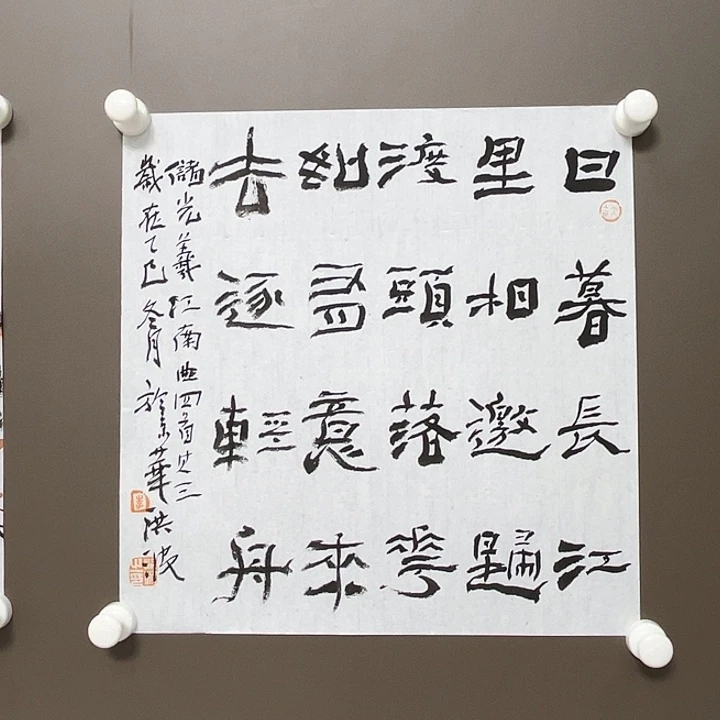 日暮長江
里相邀歸
渡頭落花
如有意來
去逐輕舟
儲光羲江南曲四首其三
歲在乙巳冬月於京華洪波